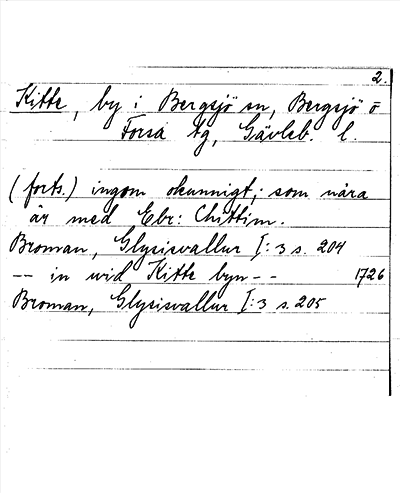 2.
Kitte, by i Bergsjö sn, Bergsjö o
Forsa tg, Gävleb. l.
(forts.) ingom okunnigt; som nära
är med Ebr: Chittim.
Broman, Glysisvallur I:3 s. 204
-- in wid Kitte byn -- 1726
Broman, Glysisvallur I:3 s. 205